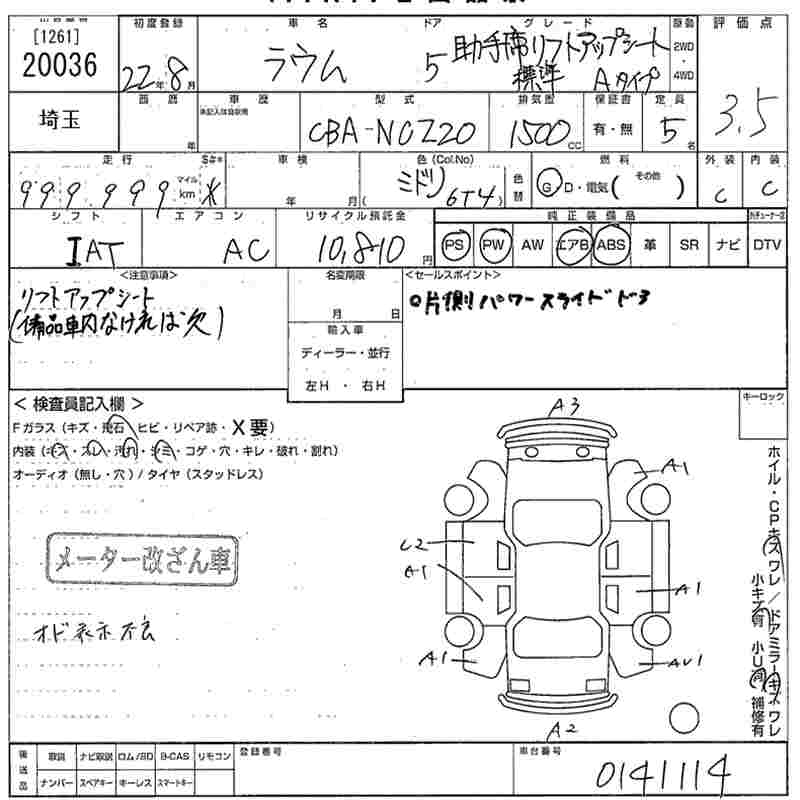 [1261]
20036
埼玉
初度登録
22年8月
車名
ラウム
ドア
5
グレード
助手席リフトアップシート
標準 Aタイプ
原動
2WD
・
4WD
評価点
3.5
西暦
年
車歴
型式
CBA-NCZ20
排気量
1500cc
保証書
有・無
定員
5名
走行
999,999
マイル
km
S#*
*
車検
年 月
色(Col.No)
ミドリ
(6T4)
色替
燃料
G・D・電気( その他 )
外装
C
内装
C
シフト
IAT
エアコン
AC
リサイクル預託金
10,810円
純正装備品
PS PW AW エアB ABS 革 SR ナビ
DTV
<注意事項>
リフトアップシート
(備品車内なければ欠)
名変期限
月 日
輸入車
ディーラー・並行
左H ・ 右H
<セールスポイント>
○片側パワースライドドア
<検査員記入欄>
Fガラス(キズ・飛石・ヒビ・リペア跡・X要)
内装(キズ・スレ・汚れ・シミ・コゲ・穴・キレ・破れ・割れ)
オーディオ(無し・穴)/タイヤ(スタッドレス)
メーター改ざん車
オド表示不良
A3
A1
C2
A1
A1
A1
AU1
A2
キーロック
ホイル・CPキズワレ/ドアミラーキズワレ
小キズ有 小U有 補修有
後送品
取説 ナビ取説 ロム/SD B-CAS リモコン
ナンバー スペアキー キーレス スマートキー
登録番号
車台番号
0141114